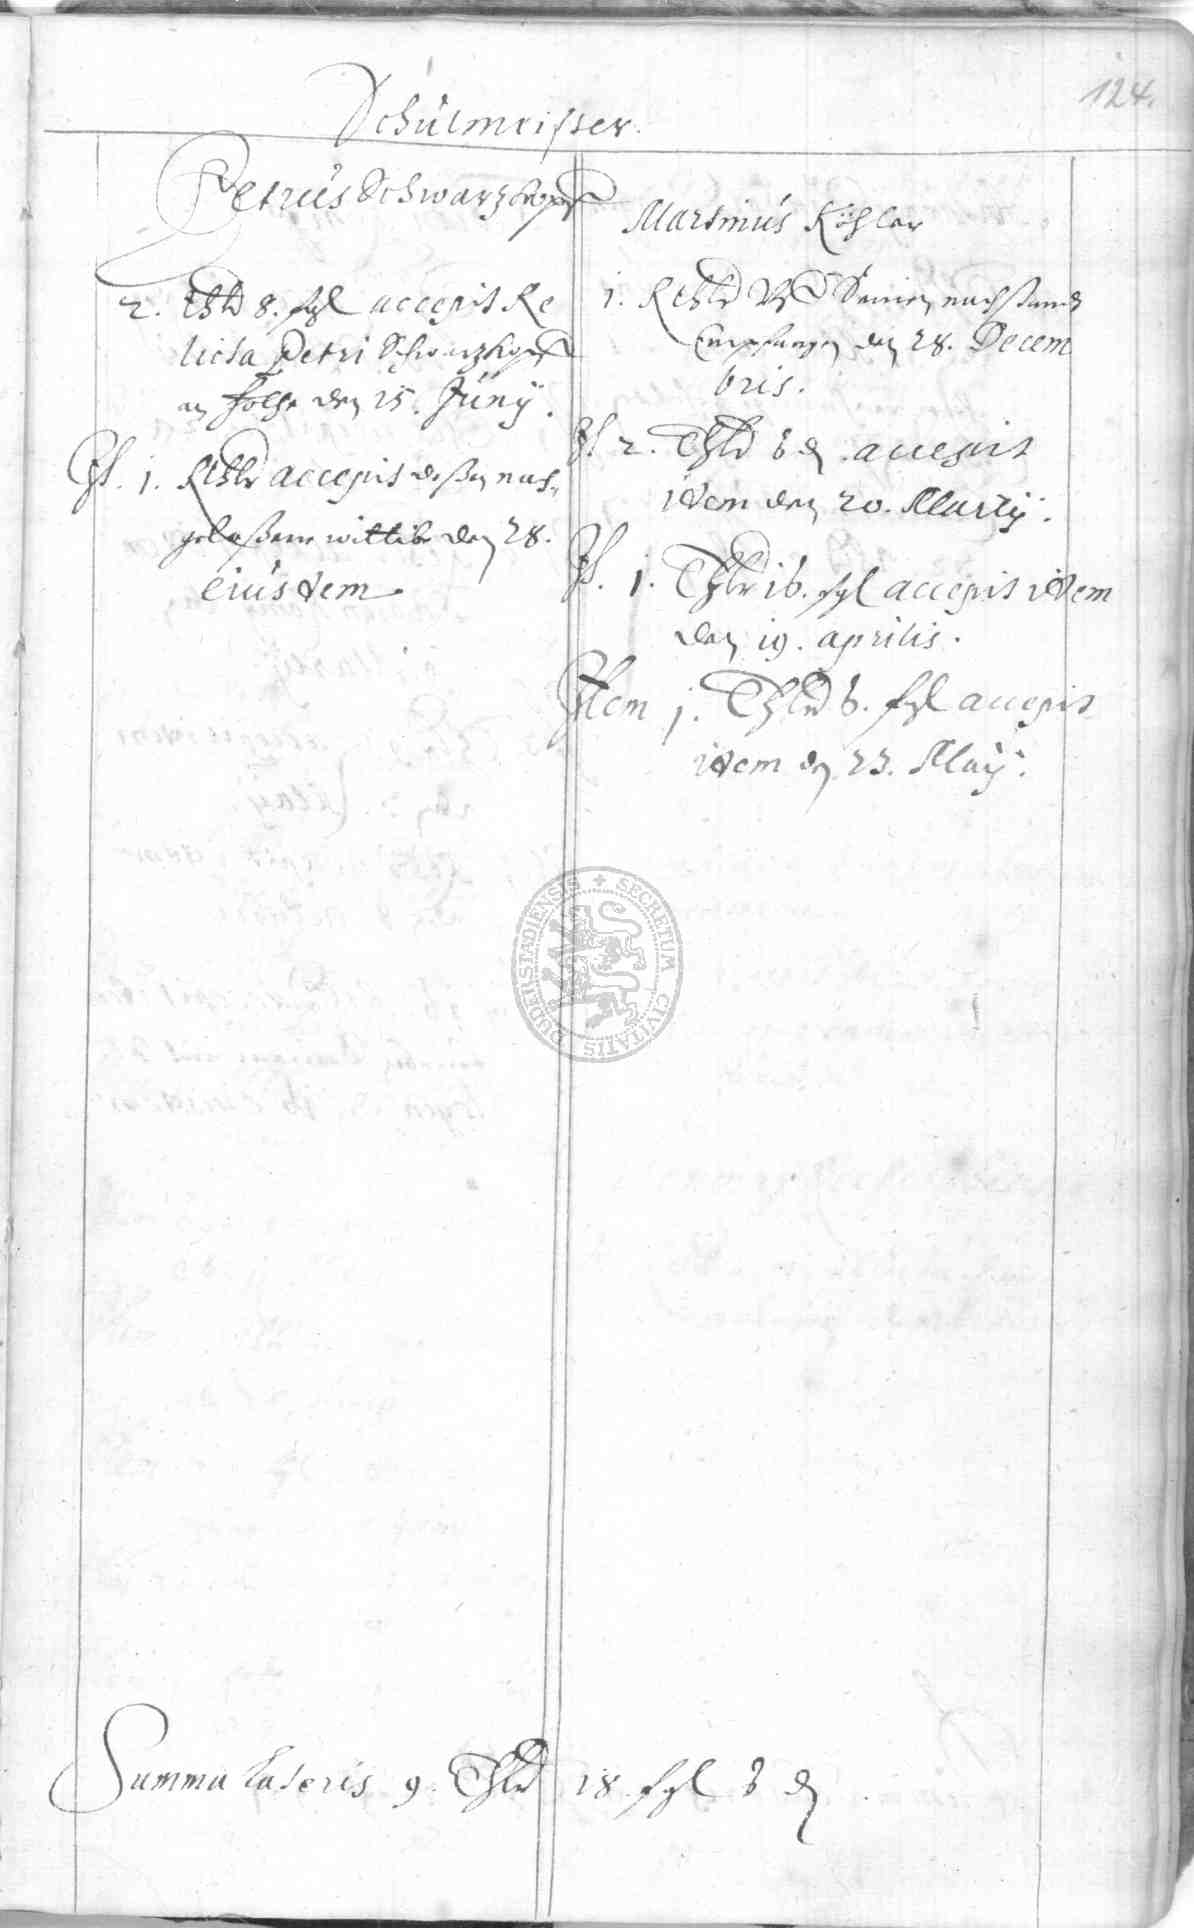 124.
Schulmeister.
Petrus Schwartzkopf
2. Thlr 8. sgl accepit Re
licta Petri Schwartzkopf
an Holtze den 15. Juny.
It. 1. Rthlr accepit deßen nach-
gelaßene wittibe den 28.
eiusdem.
Martinus Köhler
1. Rthlr Uff Seinen nachstand
Empfangen den 28. Decem
bris.
It 2. Thlr 6 ₰ accepit
idem den 20. Marty.
It. 1. Thlr 16. sgl accepit idem
den 19. aprilis.
Item 1. Thlr 6. sgl accepit
idem den 23. May.
SECRETUM CIVITATIS DUDERSTADIENSIS
Summa Lateris 9. Thlr 18 sgl 6 ₰